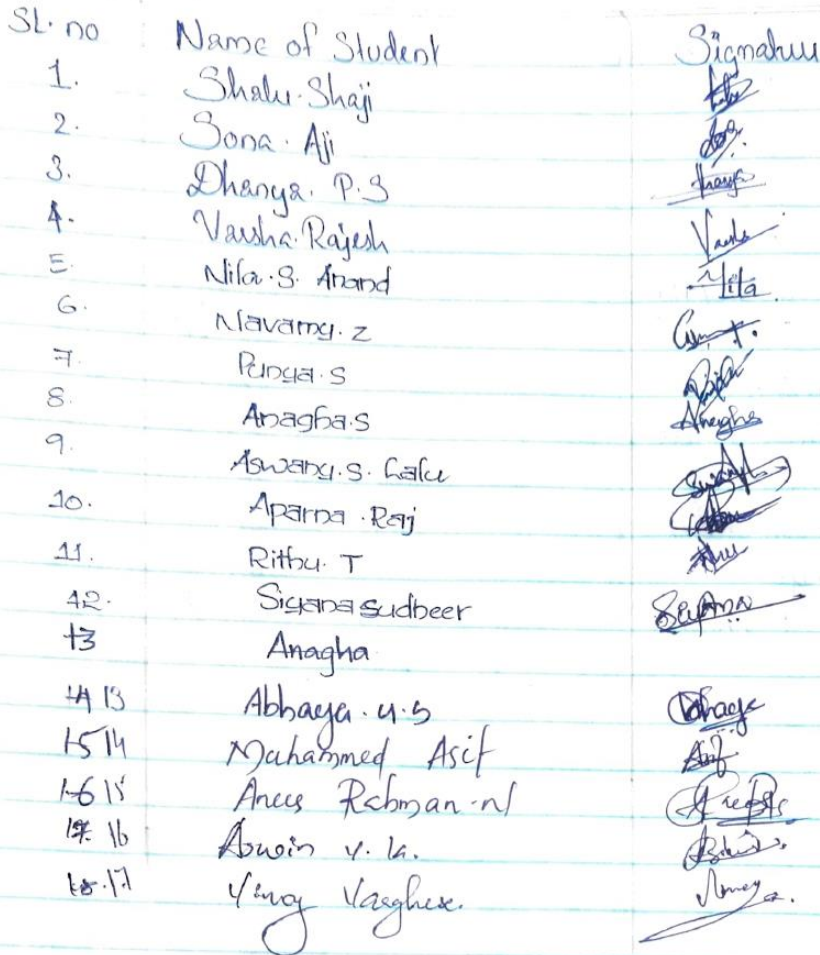 SL. no Name of Student Signature
1. Shalu. Shaji
2. Sona. Aji
3. Dhanya. P. S
4. Varsha. Rajesh Varsha
5. Nila. S. Anand Nila
6. Navamy. Z
7. Punya. S
8. Anagha. S Anagha
9. Aswany. S. Lalu
10. Aparna. Raj
11. Rithu. T
12. Siyana sudheer Siyana
13 Anagha
14 13 Abhaya. U. S Abhaya
15 14 Muhammed Asif Asif
16 15 Anees Rahman. n
17. 16 Aswin
18. 17 Varghese.